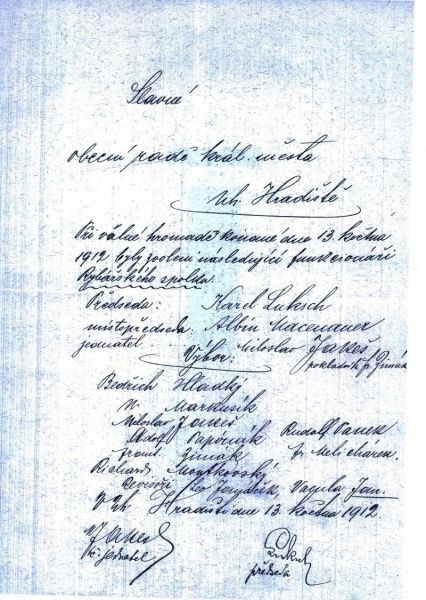 Slavné
obecní radě král. města
Uh. Hradiště
Při valné hromadě konané dne 13. května
1912 byly zvoleni následující funkcionáři
Rybářského spolku.
Předseda: Karel Luksch
místopředseda: Albín Macenauer
jednatel . . . Miloslav Jakeš
Výbor: pokladník p. Zimák
Bedřich Hladký
Markusík
Miloslav Jakeš Rudolf Vanek
Adolf Paporník Fr. Melichárek
Frant. Zimák
Richard
Revisoři Vagula Jan.
V Uh. Hradišti dne 13. května 1912
MJakeš Luksch
t.č. jednatel předseda